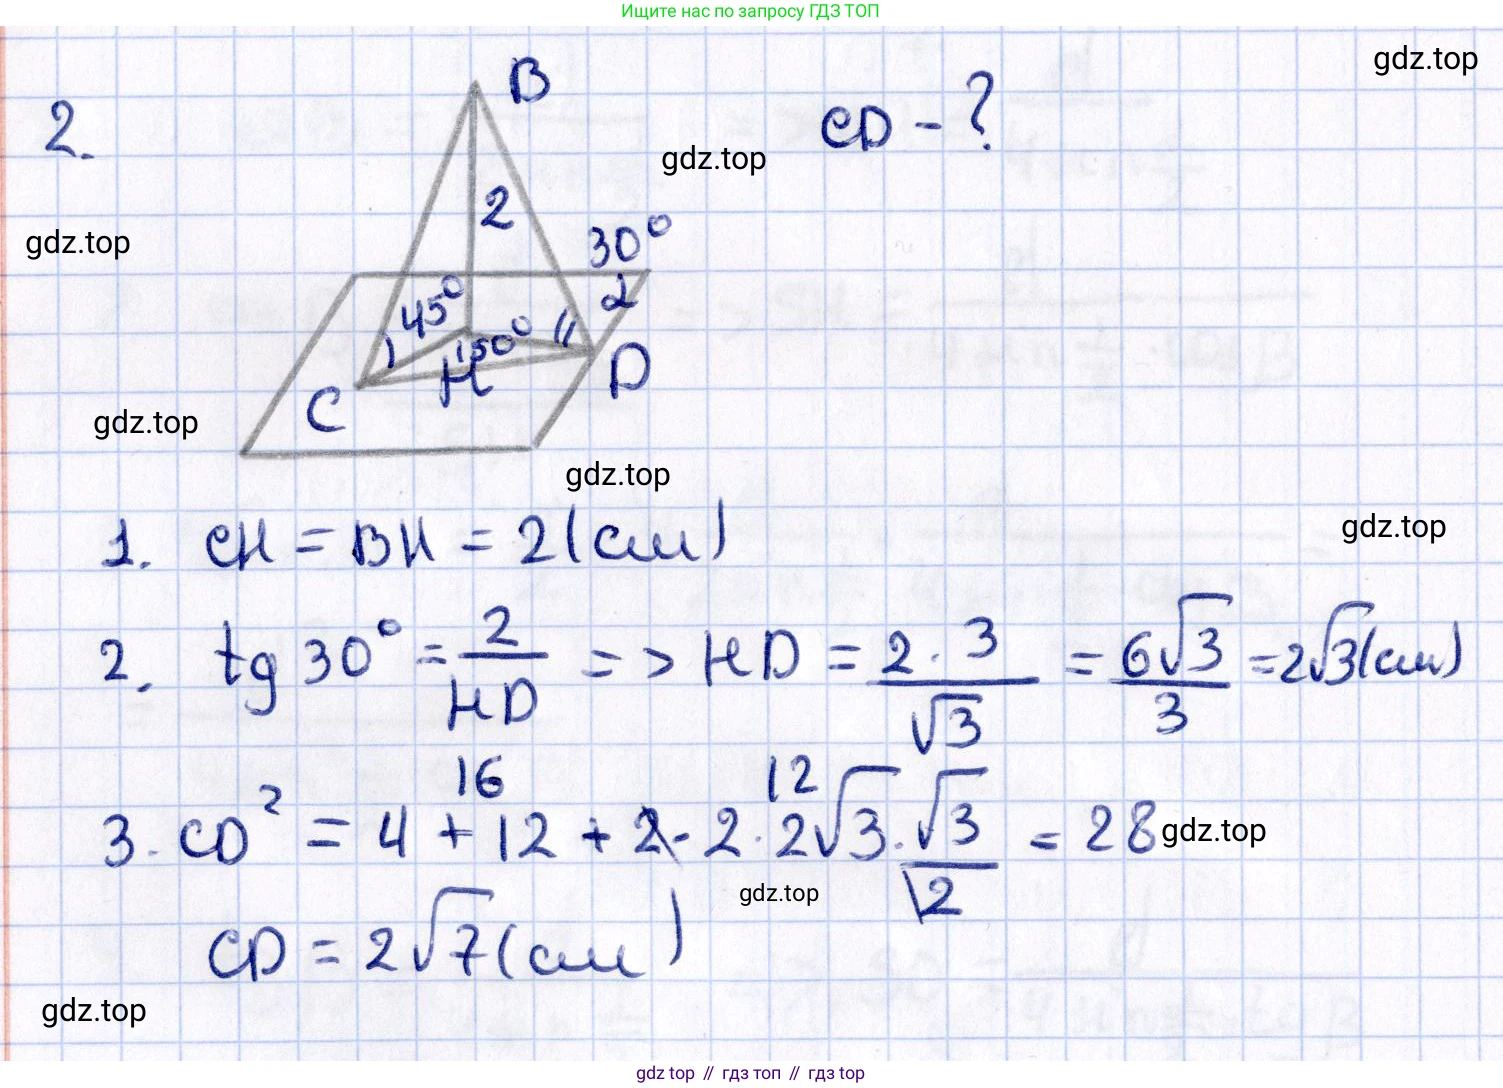 Ищите нас по запросу ГДЗ ТОП
gdz.top
2.
B
CD - ?
gdz.top
2
30°
gdz.top
45°
α
150°
H
D
C
gdz.top
gdz.top
1. CH = BH = 2 (см)
gdz.top
2. tg 30° = 2/HD => HD = 2 · 3/√3 = 6√3/3 = 2√3 (см)
16 12
3. CD² = 4 + 12 + 2 · 2 · 2√3 · √3/2 = 28
gdz.top
gdz.top
CD = 2√7 (см)
gdz.top
gdz.top // гдз топ // гдз top